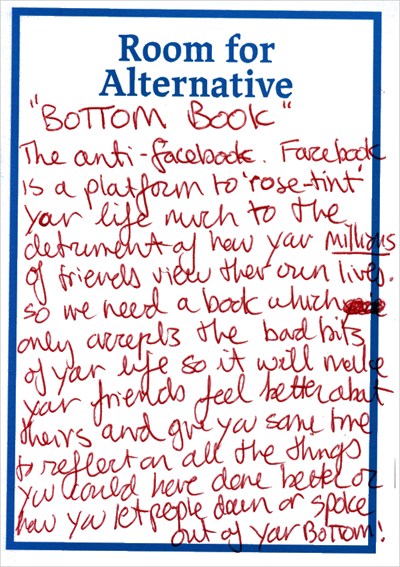 Room for
Alternative
"BOTTOM BOOK"
The anti-facebook. Facebook
is a platform to 'rose-tint'
your life much to the
detriment of how your millions
of friends view their own lives.
so we need a book which
only accepts the bad bits
of your life so it will make
your friends feel better about
theirs and give you some time
to reflect on all the things
you could have done better or
how you let people down or spoke
out of your BOTTOM!